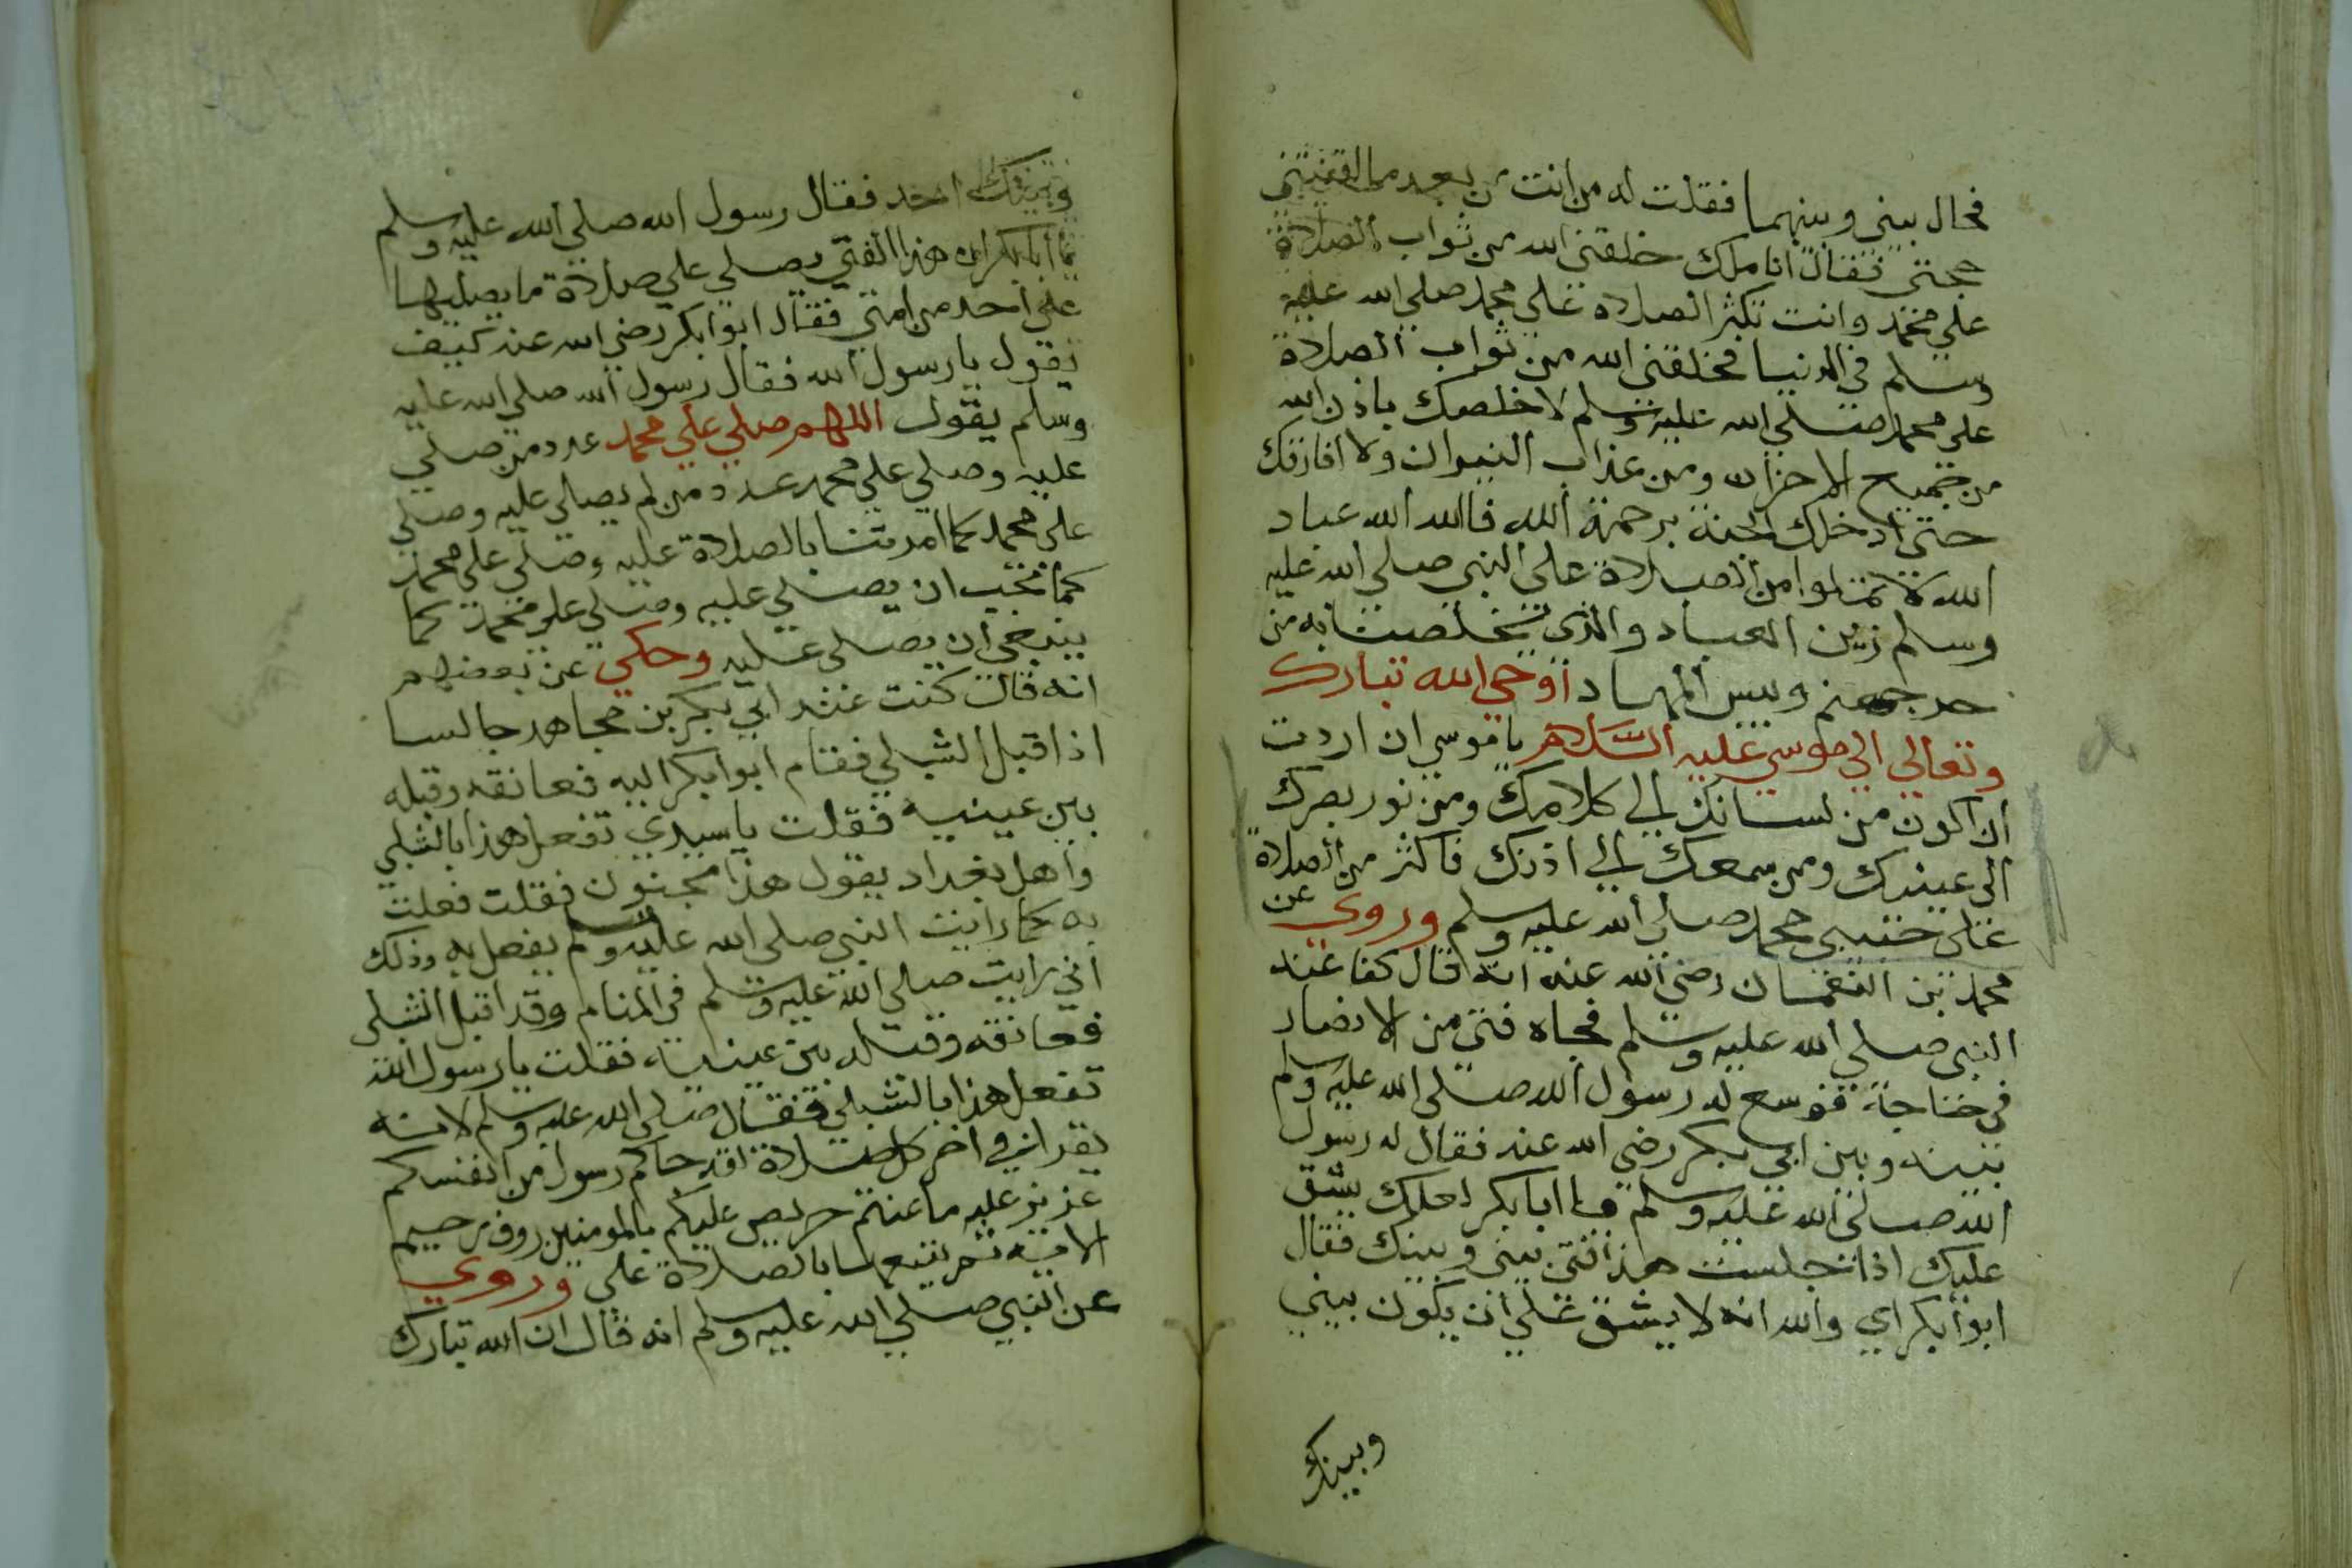 فحال بيني وبينهما فقلت له من انت من بعد ما لقنتني
حجتي فقال انا ملك خلقني الله من ثواب الصلاة
على محمد وانت تكثر الصلاة على محمد صلى الله عليه
وسلم في الدنيا فخلقني الله من ثواب الصلاة
على محمد صلى الله عليه وسلم لاخلصك باذن الله
من جميع الاحزان ومن عذاب النيران ولا افارقك
حتى ادخلك الجنة برحمة الله فالله الله عباد
الله لا تملوا من الصلاة على النبي صلى الله عليه
وسلم زين العباد والذي تخلصنا به من
حر جهنم وبيس المهاد اوحى الله تبارك
وتعالى الى موسى عليه السلام يا موسى ان اردت
ان اكون من لسانك الى كلامك ومن نور بصرك
الى عينيك ومن سمعك الى اذنك فاكثر من الصلاة
على حبيبي محمد صلى الله عليه وسلم وروي عن
محمد بن النعمان رضي الله عنه انه قال كنا عند
النبي صلى الله عليه وسلم فجاه فتى من الانصار
في حاجة فوسع له رسول الله صلى الله عليه وسلم
بينه وبين ابي بكر رضي الله عنه فقال له رسول
الله صلى الله عليه وسلم يا ابا بكر لعلك يشق
عليك اذا جلست هذا فتى بيني وبينك فقال
ابو ابكر اي والله انه لا يشق علي ان يكون بيني
وبينك
وبينك احد فقال رسول الله صلى الله عليه وسلم
يا ابا بكر ان هذا الفتى يصلي علي صلاة ما يصليها
علي احد من امتي فقال ابو ابكر رضي الله عنه كيف
تقول يا رسول الله فقال رسول الله صلى الله عليه
وسلم يقول اللهم صلي علي محمد عدد من صلى
عليه وصلي علي محمد عدد من لم يصلي عليه وصلي
على محمد كما امرتنا بالصلاة عليه وصلي علي محمد
كما تحب ان يصلى عليه وصلي على محمد كما
ينبغي ان يصلى عليه وحكي عن بعضهم
انه قال كنت عند ابي بكر بن مجاهد جالسا
اذ اقبل الشبلي فقام ابو ابكر اليه فعانقه وقبله
بين عينيه فقلت يا سيدي تفعل هذا بالشبلي
واهل بغداد يقول هذا مجنون فقلت فعلت
به كما رايت النبي صلى الله عليه وسلم يفعل به وذلك
اني رايت صلى الله عليه وسلم في المنام وقد اقبل الشبلي
فعانقه وقبله بين عينيه فقلت يا رسول الله
تفعل هذا بالشبلي فقال صلى الله عليه وسلم لانه
يقرا في اخر كل صلاة لقد جاكم رسول من انفسكم
عزيز عليه ما عنتم حريص عليكم بالمومنين روف رحيم
الاية ثم يتبعها بالصلاة علي وروي
عن النبي صلى الله عليه وسلم انه قال ان الله تبارك